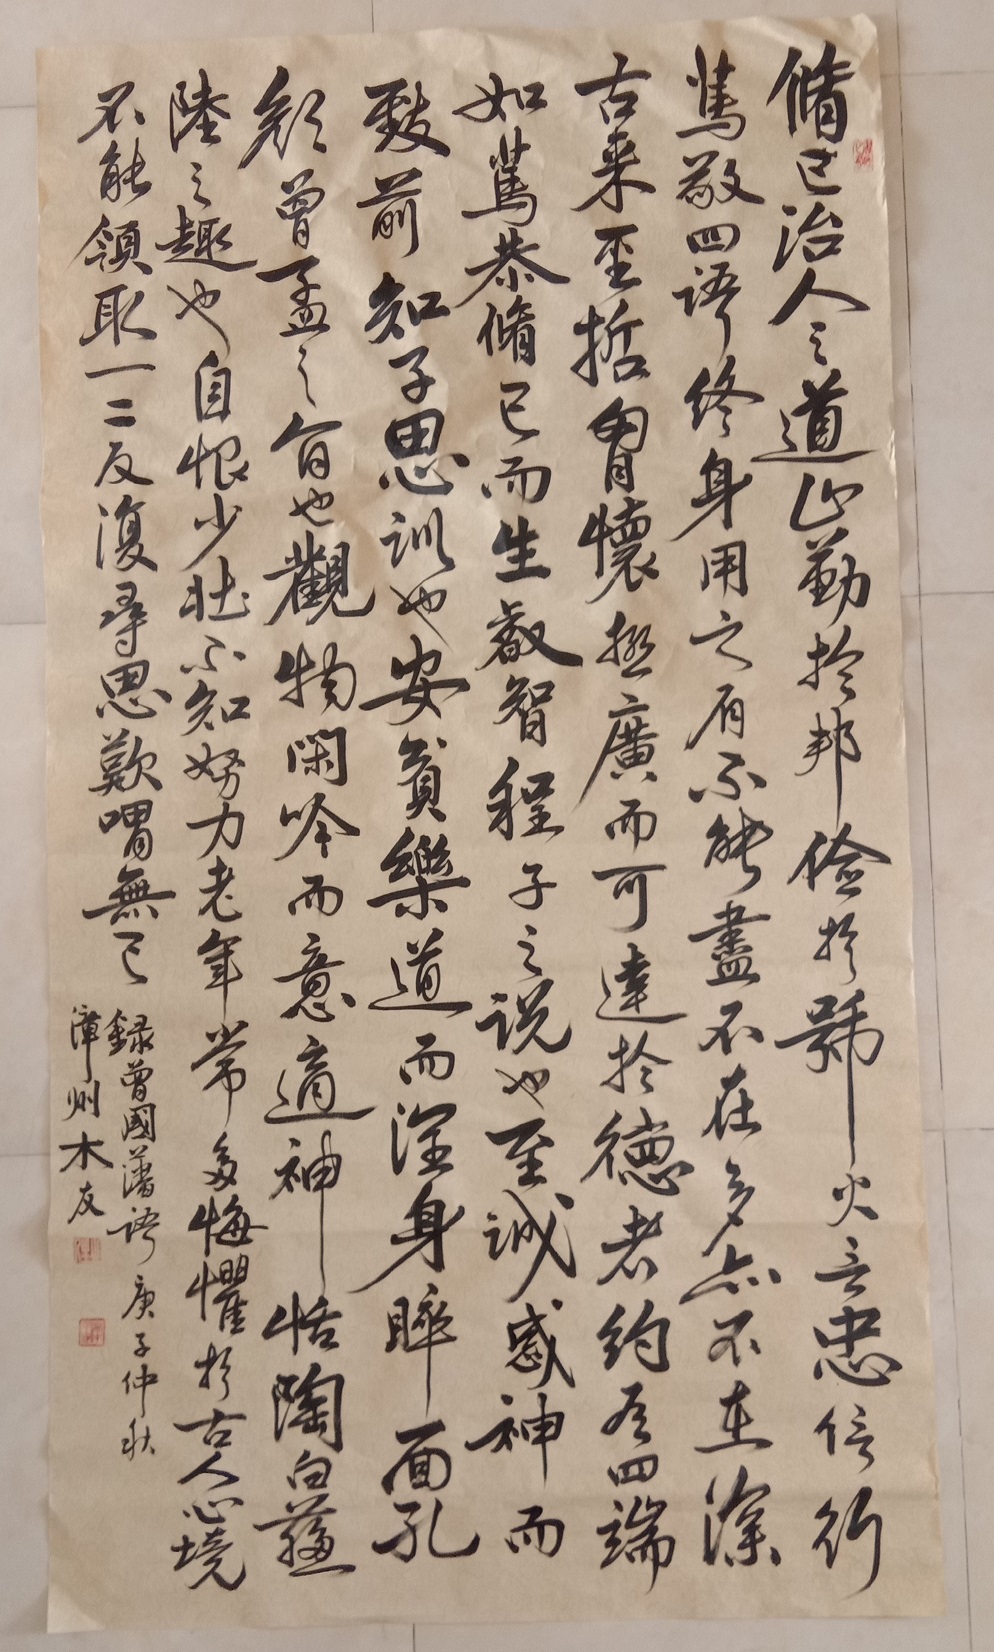 脩己治人之道止勤於邦儉於號火言忠信行
篤敬四語終身用之有不能盡不在多亦不在深
古來聖哲胷懷極廣而可達於德者約有四端
如篤恭脩己而生叡智程子之說也至誠感神而
致前知子思訓也安貧樂道而潤身睟面孔
顏曾孟之旨也觀物閑吟而意適神恬陶白蘓
陸之趣也自恨少壯不知努力老年常多悔懼於古人心境
不能領取一二反復尋思歎喟無已
錄曾國藩語庚子仲秋
漳州木友